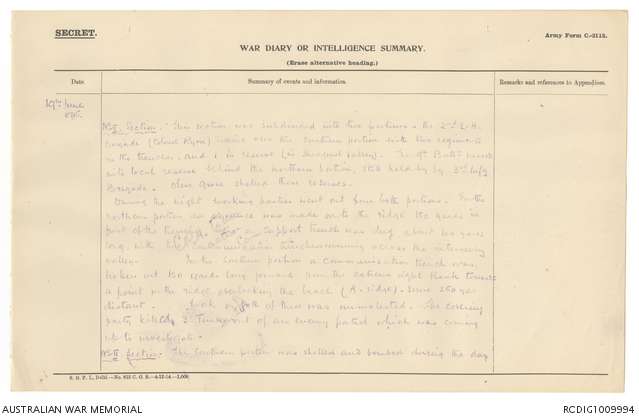 SECRET.
Army Form C-2118.
WAR DIARY OR INTELLIGENCE SUMMARY.
(Erase alternative heading.)
Date
Summary of events and information
Remarks and references to Appendices.
19th June
Section. This section was subdivided into two portions. The 2nd L.H.
Brigade (Colonel Ryrie) taking over the Southern portion with two regiments
in the trenches and 1 in reserve (in Shrapnel Valley). The 9th Battn moved
into local reserve behind the northern portion, still held by 3rd Infy
Brigade. Olive Grove shelled these reserves.
During the night working parties went out from both portions. In the
northern portion an advance was made on to the ridge 180 yards in
front of the trenches, and a support trench was dug about 100 yards
long, with communication trench running across the intervening
valley. In the Southern portion a communication trench was
taken out 150 yards long forward from the extreme right flank towards
a point on the ridge overlooking the beach (A. ridge). some 250 yds
distant. Work on both of these was unmolested. The covering
party killed 2 Turks out of an enemy patrol which was coming
up to investigate.
Section. The Southern portion was shelled and bombed during the day
S. G. P. I., Delhi
AUSTRALIAN WAR MEMORIAL
RCDIG1009994